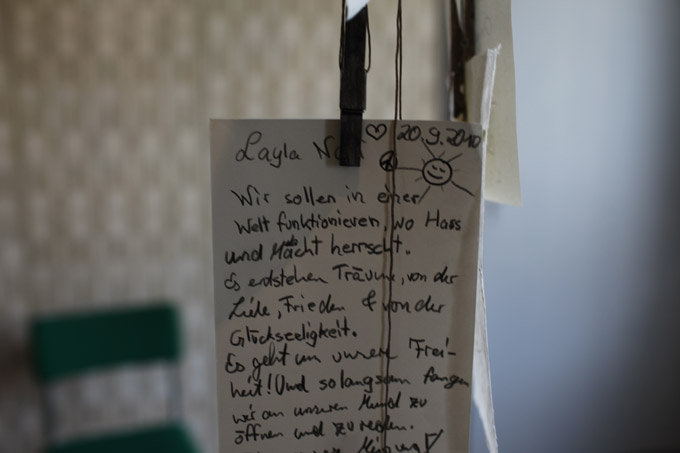 Layla 20.9.2010
Wir sollen in einer
Welt funktionieren, wo Hass
und Macht herrscht.
Es entstehen Träume, von der
Liebe, Frieden & von der
Glückseeligkeit.
Es geht um unsere Frei-
heit! Und so langsam fangen
wir an unseren Mund zu
öffnen und zu reden.